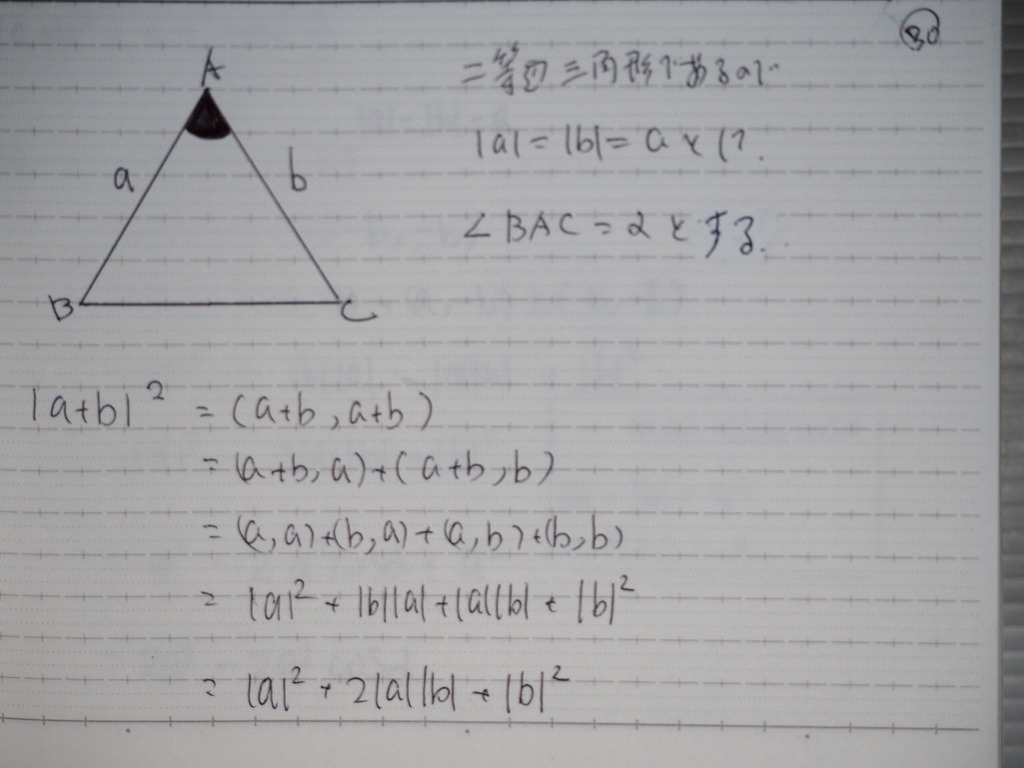 30
A
二等辺三角形であるので
|a| = |b| = a とし?.
a
b
∠BAC = α とする.
B
C
|a+b|² = (a+b, a+b)
= (a+b, a)+(a+b, b)
= (a, a)+(b, a)+(a, b)+(b, b)
= |a|² + |b||a|+|a||b| + |b|²
= |a|² + 2|a||b| + |b|²